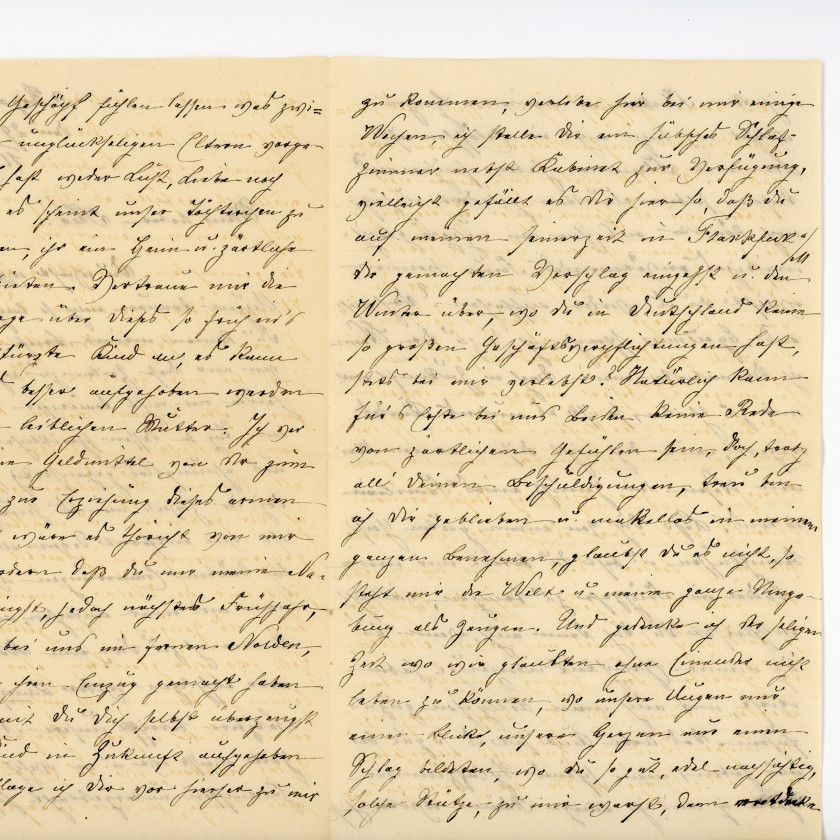 Geschöpf fühlen lassen was zwi=
unglückseligen Eltern vorge-
hast weder Lust, Liebe noch
es scheint unser Töchterchen zu
en, ihr ein Heim u. zärtliche
bieten. Vertraue mir die
ge über dieses so früh in's
stürzte Kind an, es kann
besser aufgehoben werden
leiblichen Mutter. Ich ver
Geldmittel von Dir zum
zur Erziehung dieses armen
wäre es thöricht von mir
ordern daß du mir meine
jedoch nächstes Frühjahr,
bei uns im fernen Norden,
Einzug gemacht haben
mit du Dich selbst überzeugst
Kind in Zukunft aufgehoben
lage ich Dir vor hierher zu mir
zu kommen, verlebe hier bei mir einige
Wochen, ich stelle Dir ein hübsches Schlaf-
zimmer nebst Kabinet zur Verfügung,
vielleicht gefällt es Dir hier so, daß du
auf meinen seinerzeit in Frankfurt a/M
dir gemachten Vorschlag eingehst u. den
Winter über, wo du in Deutschland keine
so großen Geschäftsverpflichtungen hast,
stets bei mir verlebst? Natürlich kann
für's Erste bei uns Beiden keine Rede
von zärtlichen Gefühlen sein, doch, trotz
all' deinen Beschuldigungen, treu bin
ich Dir geblieben u. makellos in meinem
ganzen Benehmen, glaubst du es nicht, so
steht mir die Welt u. meine ganze Umge-
bung als Zeugen. Und gedenke ich der seligen
Zeit wo wir glaubten ohne Einander nicht
leben zu können, wo unsere Augen nur
einen Blick, unsere Herzen nur einen
Schlag bildeten, wo du so gut, edel nachsichtig,
solche Stütze, zu mir warst, dann